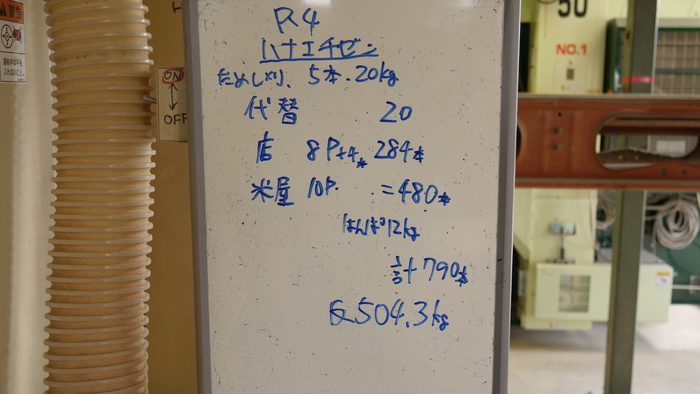 R4
ハナエチゼン
ためし刈り、5本・20kg
代替 20
店 8P+4本 284本
米屋 10P. =480本
はんぱ12kg
計790本
反504.3kg
ON
OFF
50
NO.1